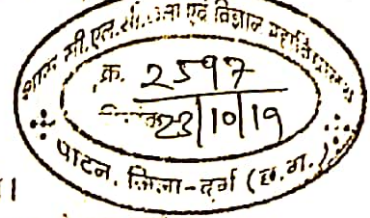 शास. सी.एल.सी. कला एवं विज्ञान महाविद्यालय
क्र. 2597
दिनांक 23/10/19
पाटन, जिला-दुर्ग (छ.ग.)
।